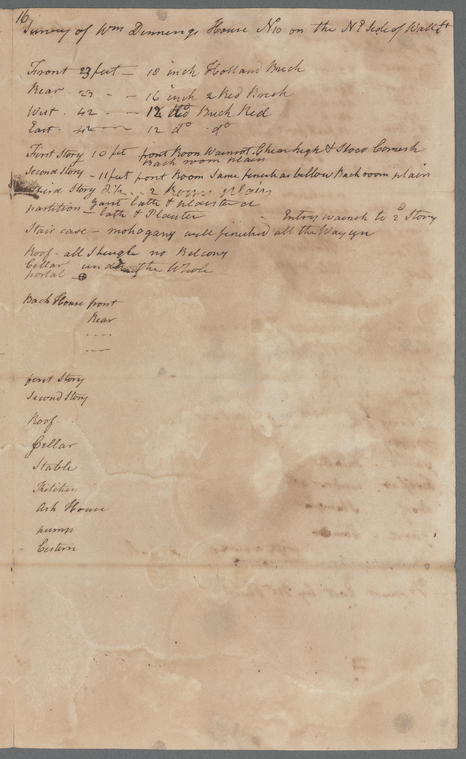 16
Survey of Wm Dennengs House No 10 on the No Side of Wall St
Front 23 feet - 18 inch Holland Brick
Rear 23 - - 16 inch 2 Red Brick
West . 42 - - 12 do Brick Red
East . 42 - - 12 do . do
First Story 10 fet front Room Wainsot Chear high & Stoco Cornesh
Back room plain
Second Story - 11 feet front Room Same finesh as bellow Back room plain
Third Story 2 Rooms plain
partition lath & plaister
lath & Plaister Entry to 2d Story
Stair case - mohogany well fineshed all the Way up
Roof - all Shengle no Belcony
Cellar under the Whole
portal -
Back House front
Rear
----
----
first Story
Second Story
Roof
Cellar
Stable
Kitchen
Ash House
pump
Cestern